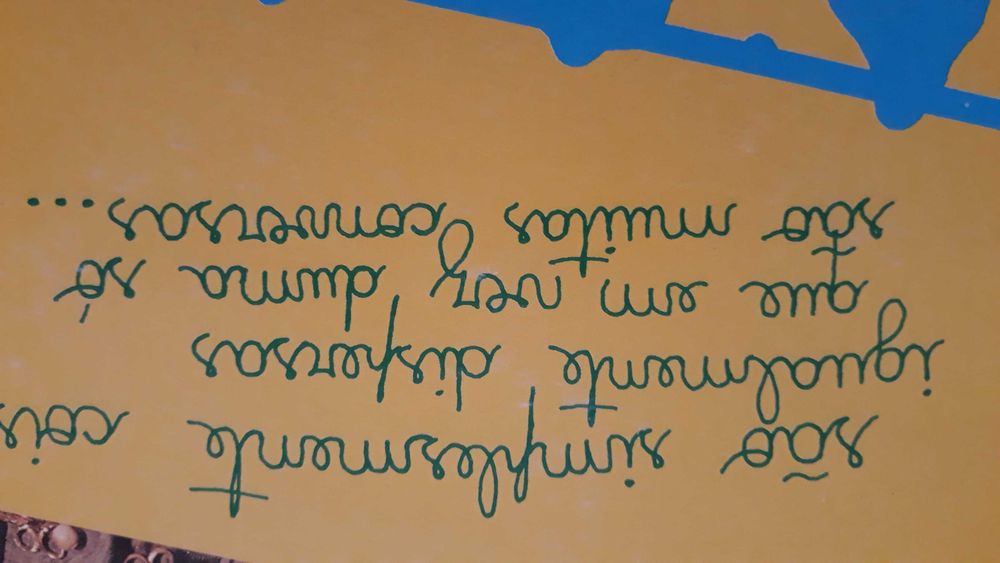 são simplesmente cois
igualmente dispersas
que em vez duma só
são muitas conversas...